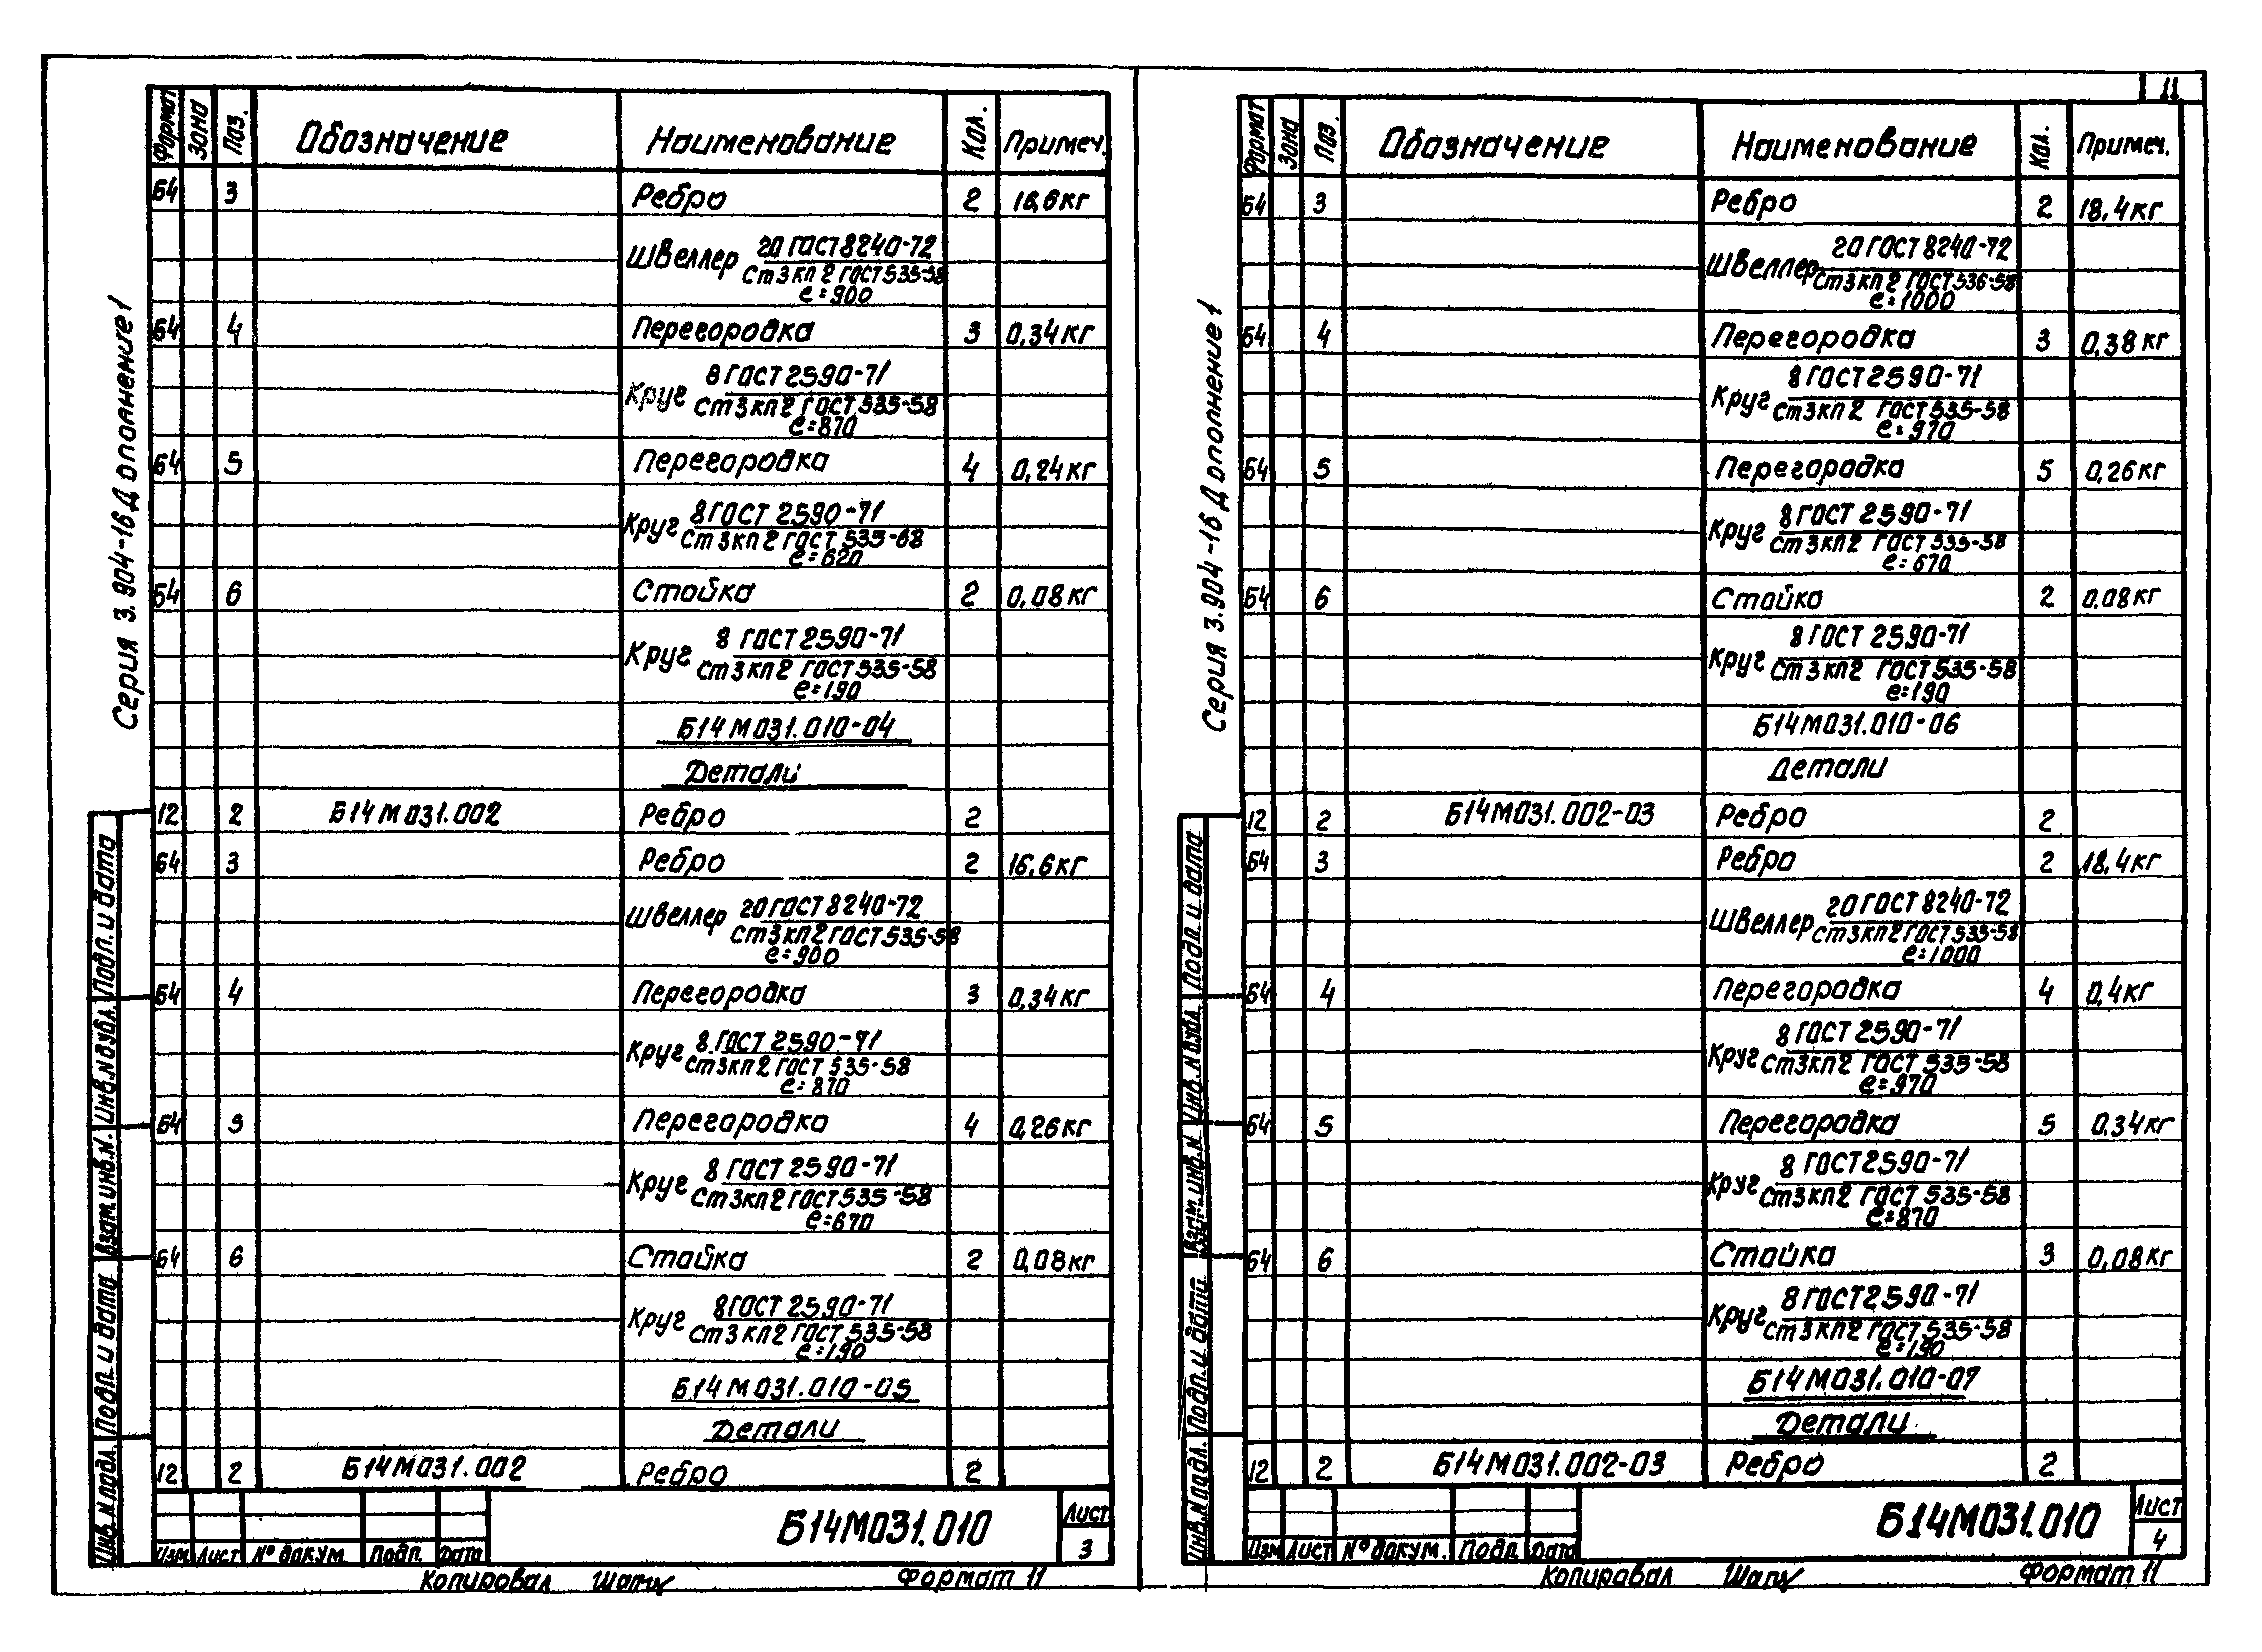 11
Серия 3.904-16 Дополнение 1
Формат Зона Поз. Обозначение Наименование Кол. Примеч.
Б4 3 Ребро 2 16,6кг
Швеллер 20 ГОСТ 8240-72
Ст 3 кп 2 ГОСТ 535-58
e=900
Б4 4 Перегородка 3 0,34кг
Круг 8 ГОСТ 2590-71
Ст 3 кп 2 ГОСТ 535-58
e=870
Б4 5 Перегородка 4 0,24кг
Круг 8 ГОСТ 2590-71
Ст 3 кп 2 ГОСТ 535-68
e=620
Б4 6 Стойка 2 0,08кг
Круг 8 ГОСТ 2590-71
Ст 3 кп 2 ГОСТ 535-58
e=190
Б14М031.010-04
Детали
12 2 Б14М031.002 Ребро 2
Б4 3 Ребро 2 16,6кг
Швеллер 20 ГОСТ 8240-72
Ст 3 кп 2 ГОСТ 535-58
e=900
Б4 4 Перегородка 3 0,34кг
Круг 8 ГОСТ 2590-71
Ст 3 кп 2 ГОСТ 535-58
e=870
Б4 5 Перегородка 4 0,26кг
Круг 8 ГОСТ 2590-71
Ст 3 кп 2 ГОСТ 535-58
e=670
Б4 6 Стойка 2 0,08кг
Круг 8 ГОСТ 2590-71
Ст 3 кп 2 ГОСТ 535-58
e=190
Б14М031.010-05
Детали
12 2 Б14М031.002 Ребро 2
Инв.N подл. Подп. и дата Взам.инв.N. Инв.N дубл. Подп. и дата
Б14М031.010
Лист
3
Изм Лист N° докум. Подп. Дата
Копировал Формат 11
Серия 3.904-16 Дополнение 1
Формат Зона Поз. Обозначение Наименование Кол. Примеч.
Б4 3 Ребро 2 18,4кг
Швеллер 20 ГОСТ 8240-72
Ст 3 кп 2 ГОСТ 536-58
e=1000
Б4 4 Перегородка 3 0,38кг
Круг 8 ГОСТ 2590-71
Ст 3 кп 2 ГОСТ 535-58
e=970
Б4 5 Перегородка 5 0,26кг
Круг 8 ГОСТ 2590-71
Ст 3 кп 2 ГОСТ 535-58
e=670
Б4 6 Стойка 2 0,08кг
Круг 8 ГОСТ 2590-71
Ст 3 кп 2 ГОСТ 535-58
e=190
Б14М031.010-06
Детали
12 2 Б14М031.002-03 Ребро 2
Б4 3 Ребро 2 18,4кг
Швеллер 20 ГОСТ 8240-72
Ст 3 кп 2 ГОСТ 535-58
e=1000
Б4 4 Перегородка 4 0,4кг
Круг 8 ГОСТ 2590-71
Ст 3 кп 2 ГОСТ 535-58
e=970
Б4 5 Перегородка 5 0,34кг
Круг 8 ГОСТ 2590-71
Ст 3 кп 2 ГОСТ 535-58
e=870
Б4 6 Стойка 3 0,08кг
Круг 8 ГОСТ 2590-71
Ст 3 кп 2 ГОСТ 535-58
e=190
Б14М031.010-07
Детали
12 2 Б14М031.002-03 Ребро 2
Инв.N подл. Подп. и дата Взам.инв.N Инв.N дубл Подп. и дата
Б14М031.010
Лист
4
Изм Лист N° докум. Подп. Дата
Копировал Формат 11